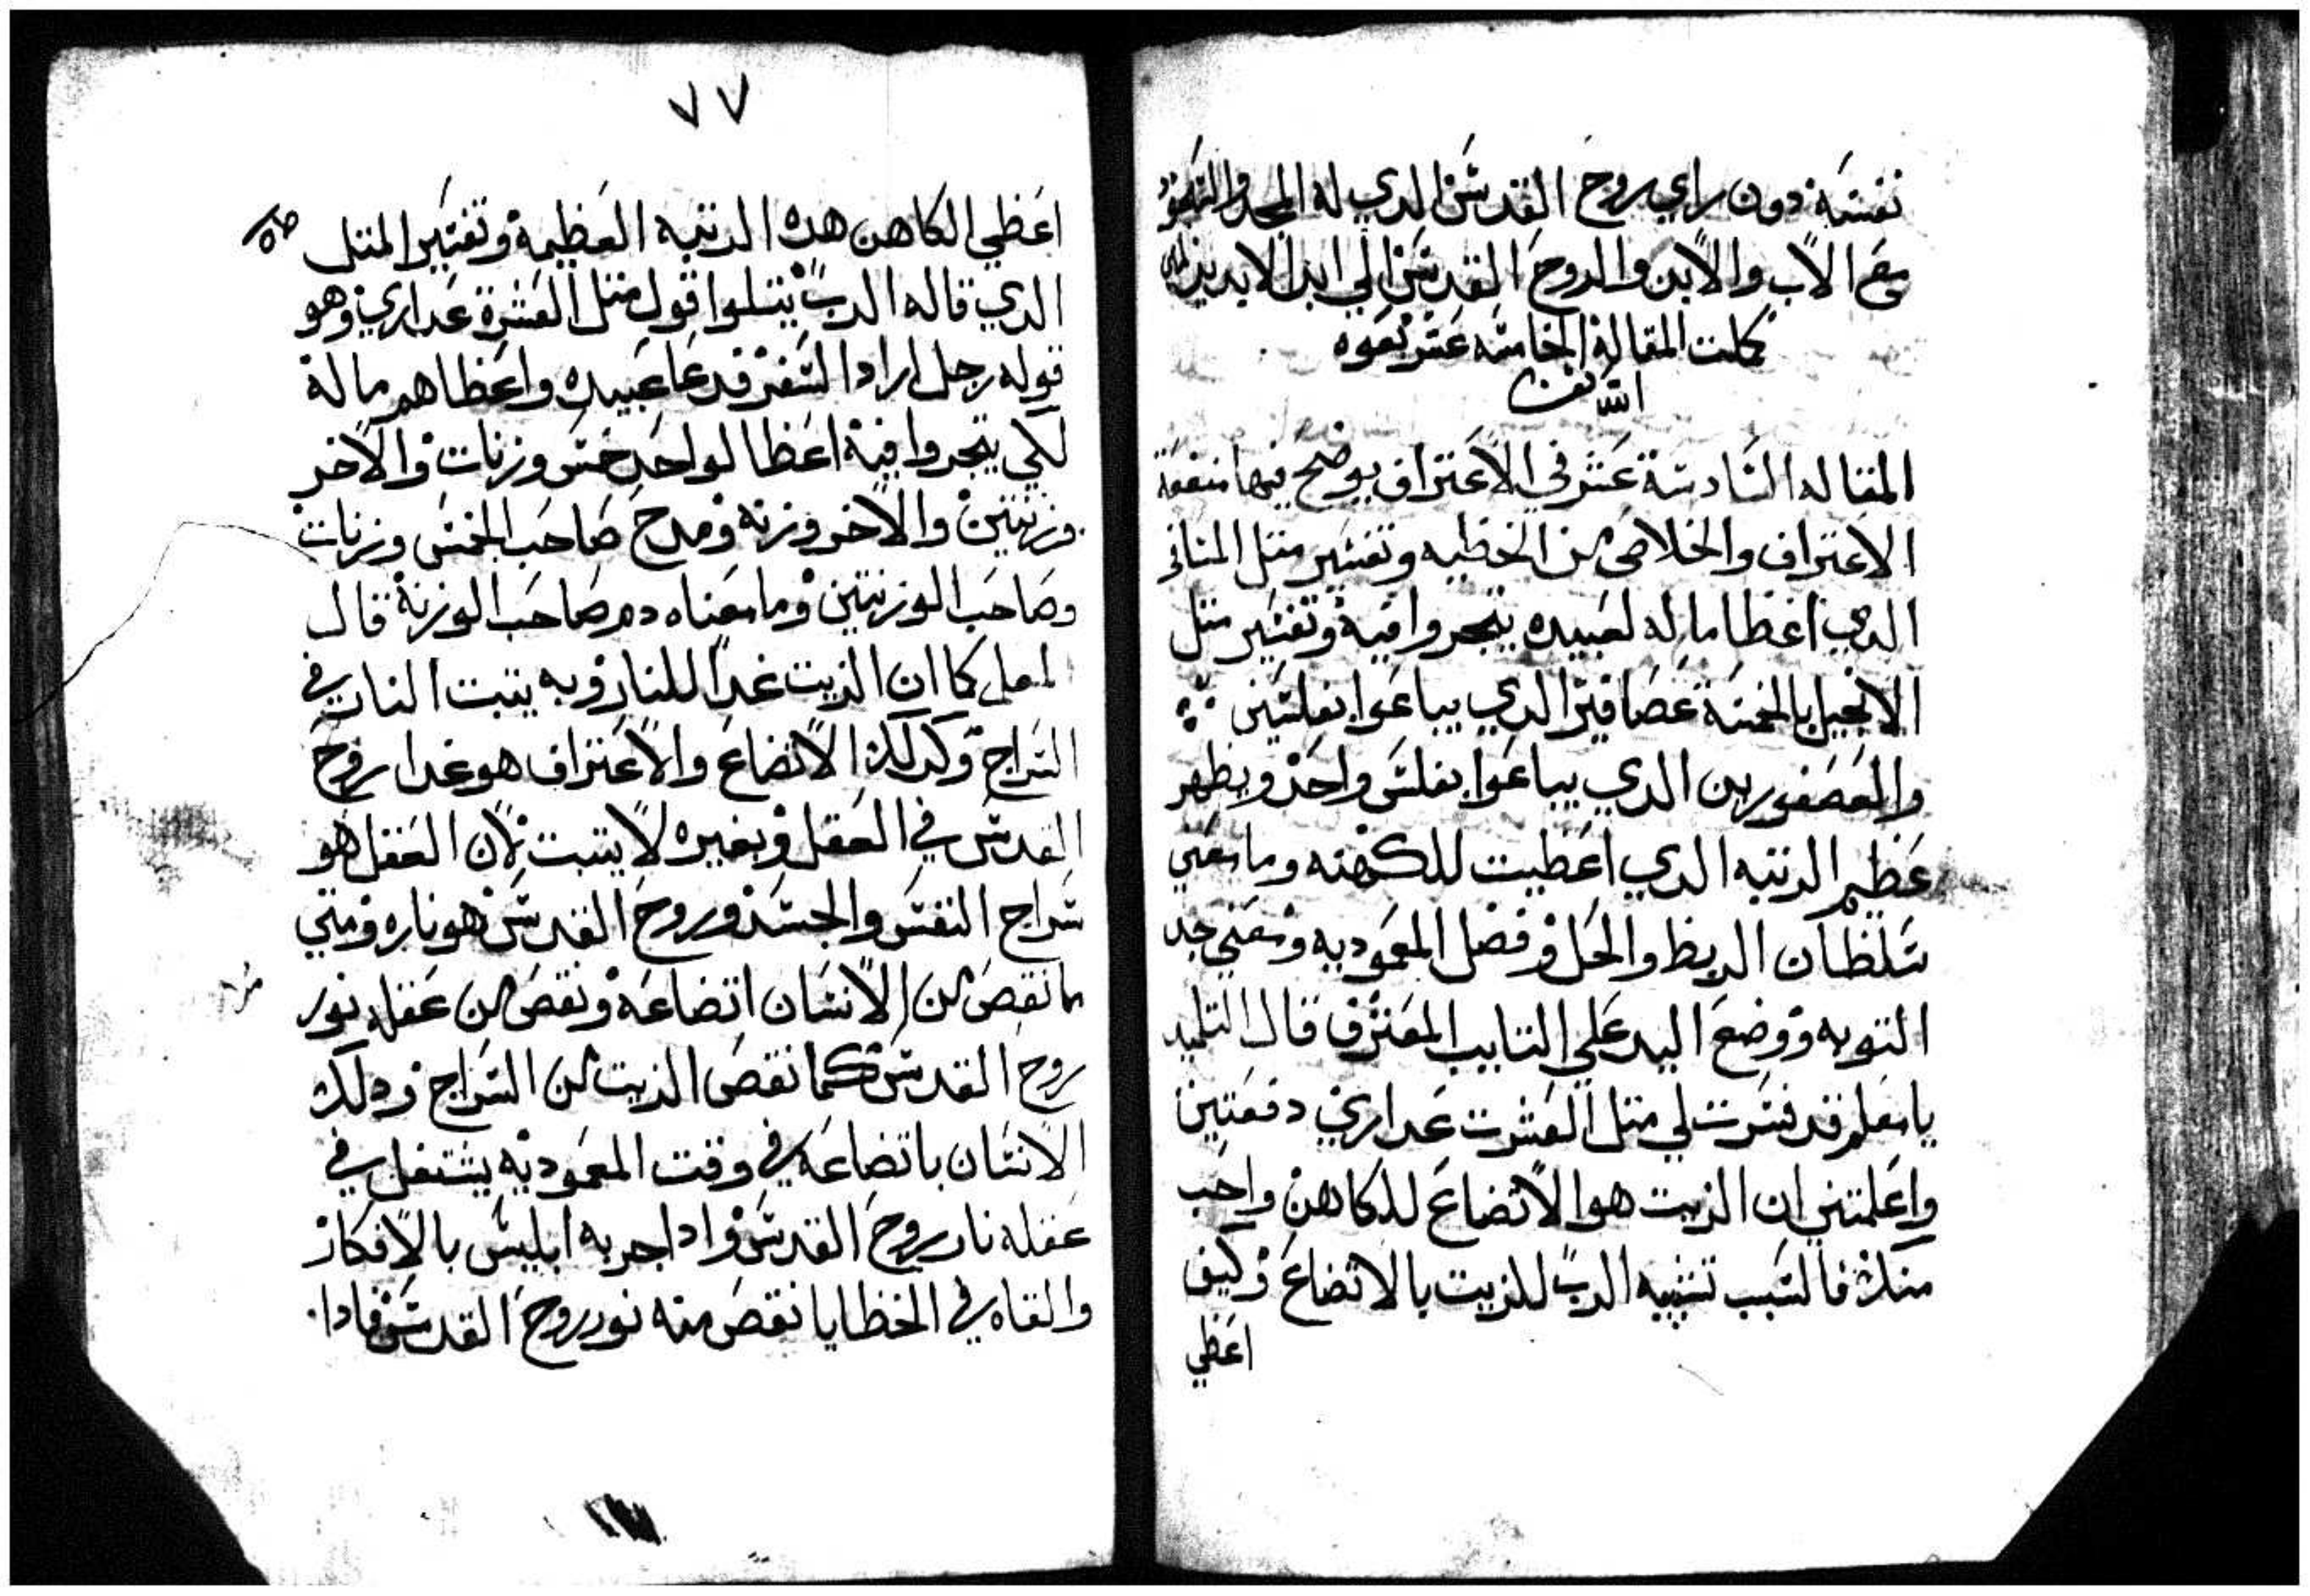 نفسه دون راي روح القدس الدي له المجد والسجود
مع الاب والابن والروح القدس الي ابد الابدين امين
كملت المقالة الخامسه عشر بعون
الله
المقاله السادسة عشر في الاعتراف يوضح فيها منفعة
الاعتراف والخلاص من الخطيه وتفسير متل
الدي اعطا ماله لعبيده يتجروا فيه وتفسير متل
الانجيل بالخمسة عصافير الدي يباعوا بفلسين
والعصفورين الدي يباعوا بفلس واحد ويظهر
عظيم الرتبه الدي اعطيت للكهنه وما معني
سلطان الربط والحل وفضل المعموديه ومعني حد
التوبه ووضع اليد علي التايب المعترف قال التلميد
يا معلم قد فسرت لي متل العشرت عداري دفعتين
واعلمتني ان الزيت هو الاتضاع للكاهن واحب
منك فالسبب تشبيه الرب للزيت بالاتضاع وكيف
اعطي
٧٧
اعطي الكاهن هده الرتبه العظيمة وتفسير المتل
الدي قاله الرب يتلوا قول متل العشرة عداري وهو
قوله رجل اراد السفر فدعا عبيده واعطاهم ماله
لكي يتجروا فيه اعطا لواحد خمس وزنات والاخر
وزنتين والاخر وزنه ومدح صاحب الخمس وزنات
وصاحب الوزنتين وما معناه دم صاحب الوزنة قال
المعلم كما ان الزيت غدا للنار وبه يتبت النار في
السراج وكدلك الاتضاع والاعتراف هو غدا روح
القدس في العقل وبغيره لا يتبت لان العقل هو
سراج النفس والجسد وروح القدس هو ناره ومتي
ما نقص من الانسان اتضاعه ونقص من عقله نور
روح القدس كما نقص الزيت من السراج ودلك
الانسان باتضاعه في وقت المعموديه يشتعل في
عقله نار روح القدس وادا جربه ابليس بالافكار
والقاه في الخطايا نقص منه نور روح القدس فادا